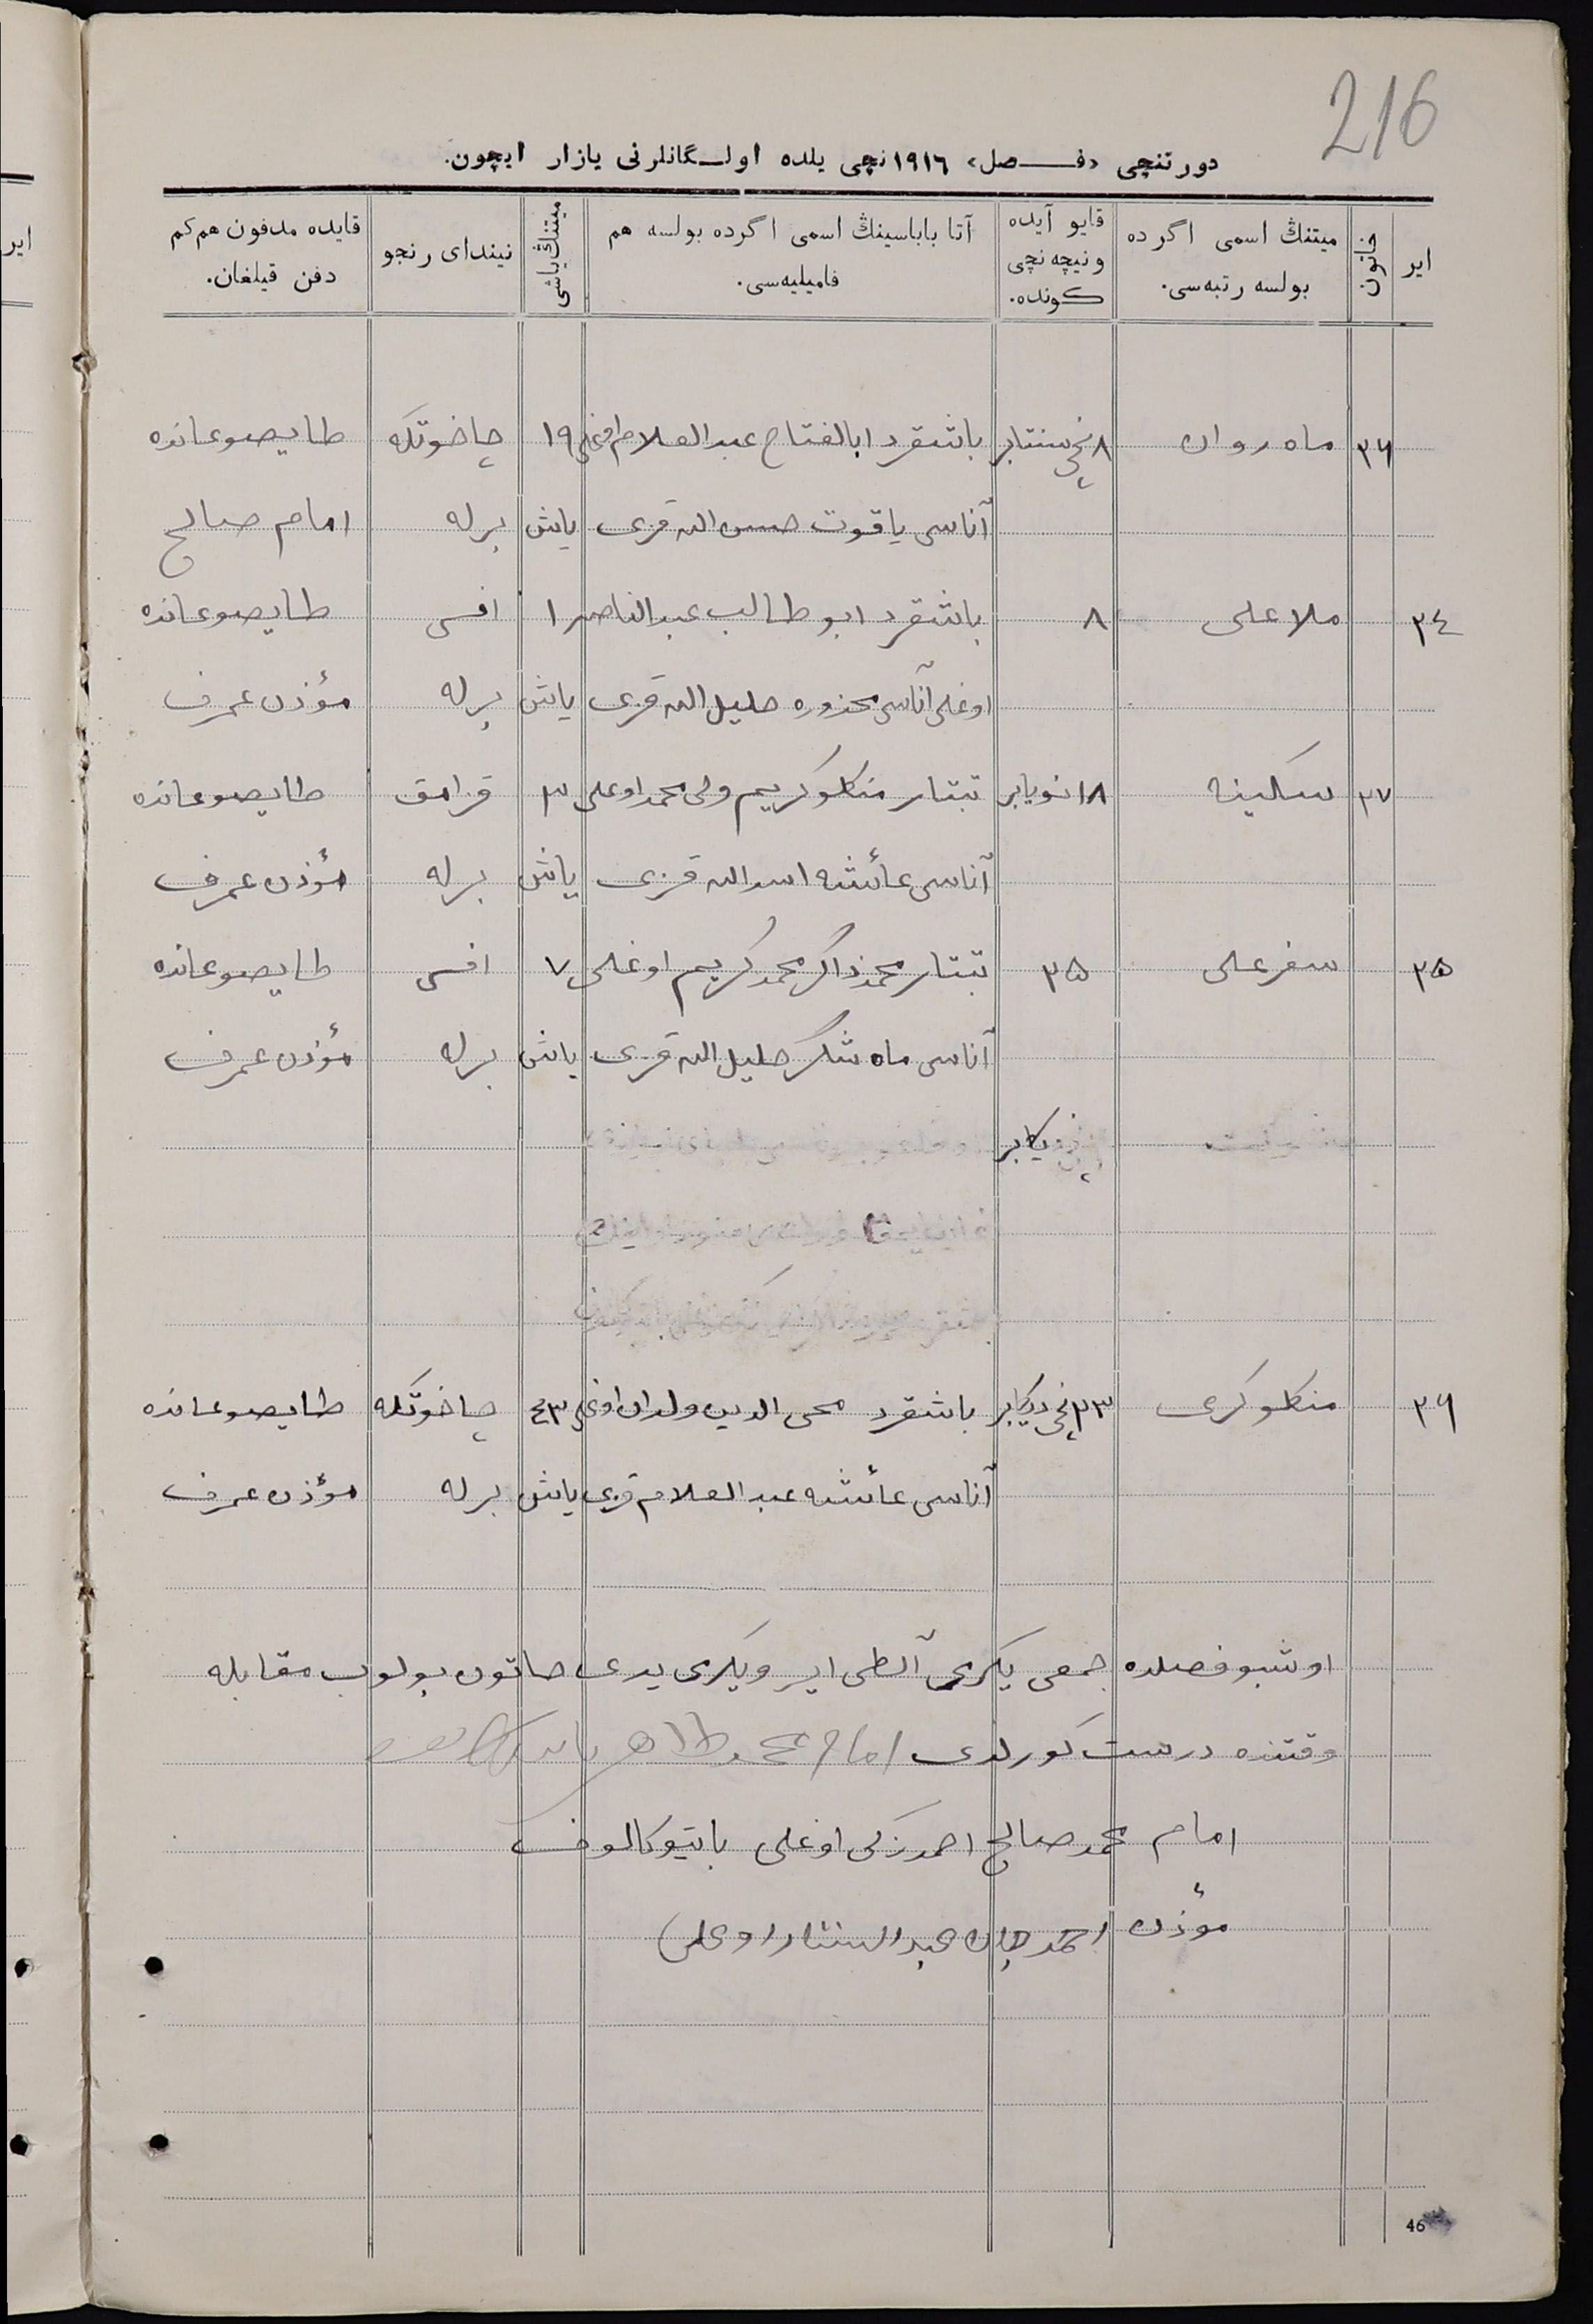 216
دورتنچی «فصل» ١٩١٦ نچی یلده اولگانلرنی یازار ایچون.
ایر
خاتون
میتنڭ اسمی اگر ده بولسه رتبه‌سی.
قایو آیده و نیچه نچی کونده.
آتا باباسینڭ اسمی اگرده بولسه هم فامیلیه‌سی.
میتنڭ یاشی
نیندای رنجو
قایده مدفون هم کم دفن قیلغان.
٢٦ ماه روان ٨ نچی سنتابر باشقرد ابالفتاح عبدالعلام اوغلی ١٩ چاخوتکه طایصوغانده
آناسی یاقوت حسن الله قزی یاش برله امام صالح
٢٤ ملا علی ٨ باشقرد ابو طالب عبدالناصر ١ افسی طایصوغانده
اوغلی آناسی محذوره خلیل الله قزی یاش برله مؤذن عمرف
٢٧ سکینه ١٨ نویابر تبتار منکلوکریم ولی محمد اوغلی ٣ قزامق طایصوغانده
آناسی عائشه اسد الله قزی یاش برله مؤذن عمرف
٢٥ سفر علی ٢٥ تبتار محمد ذاکر محمد کریم اوغلی ٧ افسی طایصوغانده
آناسی ماه شکر خلیل الله قزی یاش برله مؤذن عمرف
دیکابر
٢٦ منکلوکری ٢٣ نچی دیکابر باشقرد محی الدین ولدان اوغلی ٤٣ چاخوتکه طایصوغانده
آناسی عائشه عبدالعلام قزی یاش برله مؤذن عمرف
اوشبو فصلده جمعی یکرمی آلطی ایر و یکری یدی خاتون بولوب مقابله
وقتنده درست کورلدی امام محمد طاهر
امام محمد صالح احمد زکی اوغلی باتیوکالوف
مؤذن احمد جان عبدالستار اوغلی
46
ایر